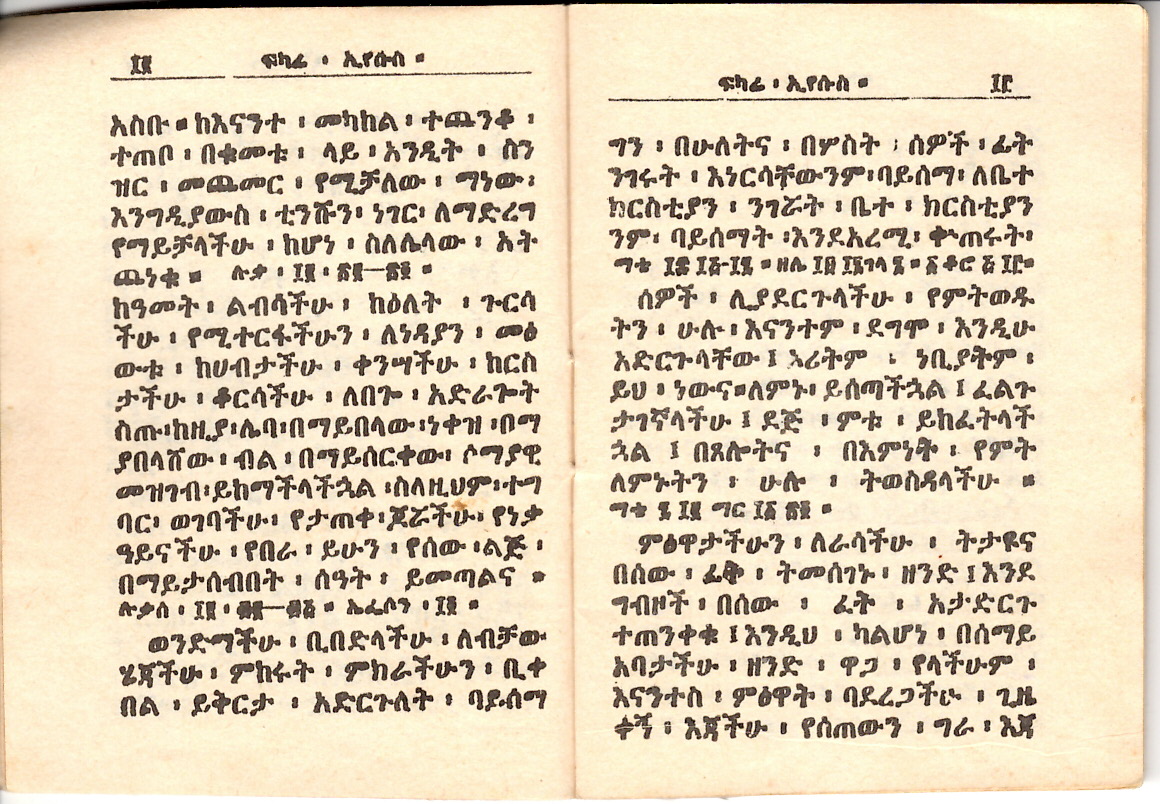 ፲፰ ፍካሬ ፡ ኢየሱስ ።
አስቡ ። ከእናንተ ፡ መካከል ፡ ተጨንቆ ፡
ተጠቦ ፡ በቁመቱ ፡ ላይ ፡ አንዲት ፡ ስን
ዝር ፡ መጨመር ፡ የሚቻለው ፡ ማነው፡
እንግዲያውስ ፡ ቲንሹን፡ ነገር፡ ለማድረግ
የማይቻላችሁ ፡ ከሆነ ፡ ስለሌላው ፡ አት
ጨነቁ ። ሉቃ ፡
ከዓመት ፡ ልብሳችሁ ፡ ከዕለት ፡ ጉርሳ
ችሁ ፡ የሚተርፋችሁን ፡ ለነዳያን ፡ መፅ
ውቱ ፡ ከሀብታችሁ ፡ ቀንሣችሁ ፡ ከርስ
ታችሁ ፡ ቆርሳችሁ ፡ ለበጎ ፡ አድራጎት
ስጡ፡ከዚያ፡ሌባ፡በማይበላው፡ነቀዝ ፡በማ
ያበላሸው ፡ ብል ፡ በማይሰርቀው፡ ሶማያዊ
መዝገብ፡ይከማችላችኋል ፡ስለዚህም፡ተግ
ባር፡ ወገባችሁ፡ የታጠቀ፡ጆሯችሁ፡ የነቃ
ዓይናችሁ ፡ የበራ ፡ ይሁን ፡ የሰው ፡ልጅ ፡
በማይታሰብበት ፡ ሰዓት ፡ ይመጣልና ።
ሉቃስ ፡ ኤፌሶን ፡
ወንድማችሁ ፡ ቢበድላችሁ ፡ ለብቻው
ሄጃችሁ ፡ ምከሩት ፡ ምክራችሁን ፡ ቢቀ
በል ፡ ይቅርታ ፡ አድርጉለት ፡ ባይሰማ
ፍካሬ ፡ ኢየሱስ ። ፲፱
ግን ፡ በሁለትና ፡ በሦስት ፡ ሰዎች ፡ ፊት
ንገሩት ፡ እነርሳቸውንም፡ባይሰማ፡ ለቤተ
ክርስቲያን ፡ ንገሯት ፡ ቤተ ፡ ክርስቲያን
ንም፡ ባይሰማት ፡እንደአረሚ፡ ቍጠሩት፡
ማቴ
ሰዎች ፡ ሊያደርጉላችሁ ፡ የምትወዱ
ትን ፡ ሁሉ ፡ እናንተም ፡ ደግሞ ፡ እንዲሁ
አድርጉላቸው ፤ ኦሪትም ፡ ነቢያትም ፡
ይህ ፡ ነውና።ለምኑ፡ ይሰጣችኋል ፤ ፈልጉ
ታገኛላችሁ ፤ ደጅ ፡ ምቱ ፡ ይከፈትላች
ኋል ፤ በጸሎትና ፡ በእምነት ፡ የምት
ለምኑትን ፡ ሁሉ ፡ ትወስዳላችሁ ።
ማቴ ማር
ምፅዋታችሁን ፡ ለራሳችሁ ፡ ትታዩና
በሰው ፡ ፊት ፡ ትመሰገኑ ፡ ዘንድ ፤ እንደ
ግብዞች ፡ በሰው ፡ ፊት ፡ አታድርጉ
ተጠንቀቁ ፤ እንዲህ ፡ ካልሆነ ፡ በሰማይ
አባታችሁ ፡ ዘንድ ፡ ዋጋ ፡ የላችሁም ፡
እናንተስ ፡ ምፅዋት ፡ ባደረጋችሁ ፡ ጊዜ
ቀኝ ፡ እጃችሁ ፡ የሰጠውን ፡ ግራ ፡ እጃ